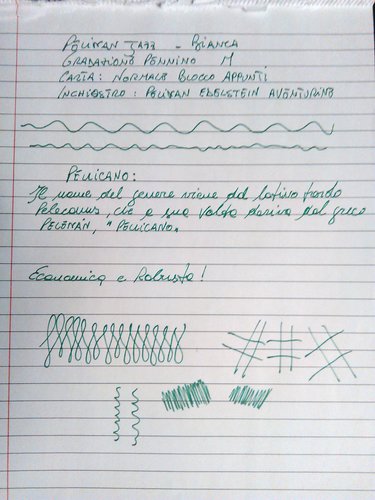 PELIKAN JAZZ - BIANCA
GRADAZIONE PENNINO M
CARTA: NORMALE BLOCCO APPUNTI
INCHIOSTRO: PELIKAN EDELSTEIN AVENTURINO
PELLICANO:
Il nome del genere viene dal latino tardo
Pelecanus, che a sua volta deriva dal greco
PELEKÀN, "PELLICANO.
Economica e Robusta!